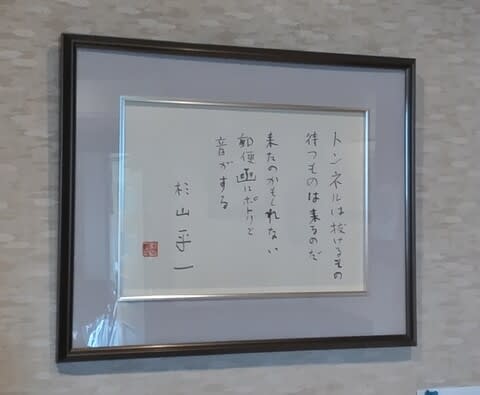 トンネルは抜けるもの
待つものは来るのだ
来たのかもしれない
郵便函にポトリと
音がする
杉山平一